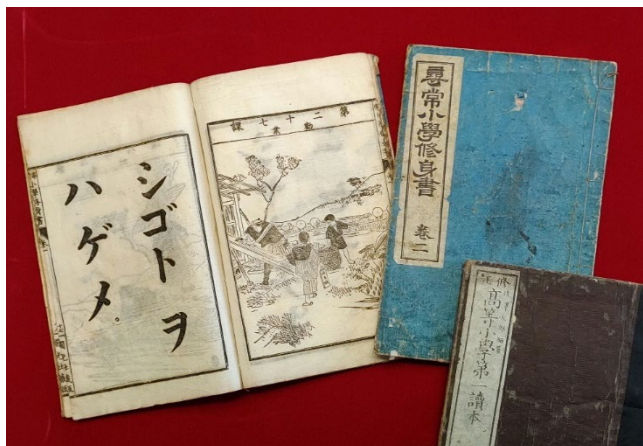 第二十七課
勤業
シゴトヲ
ハゲメ。
尋常小學修身書
卷二
高等小學第一讀本